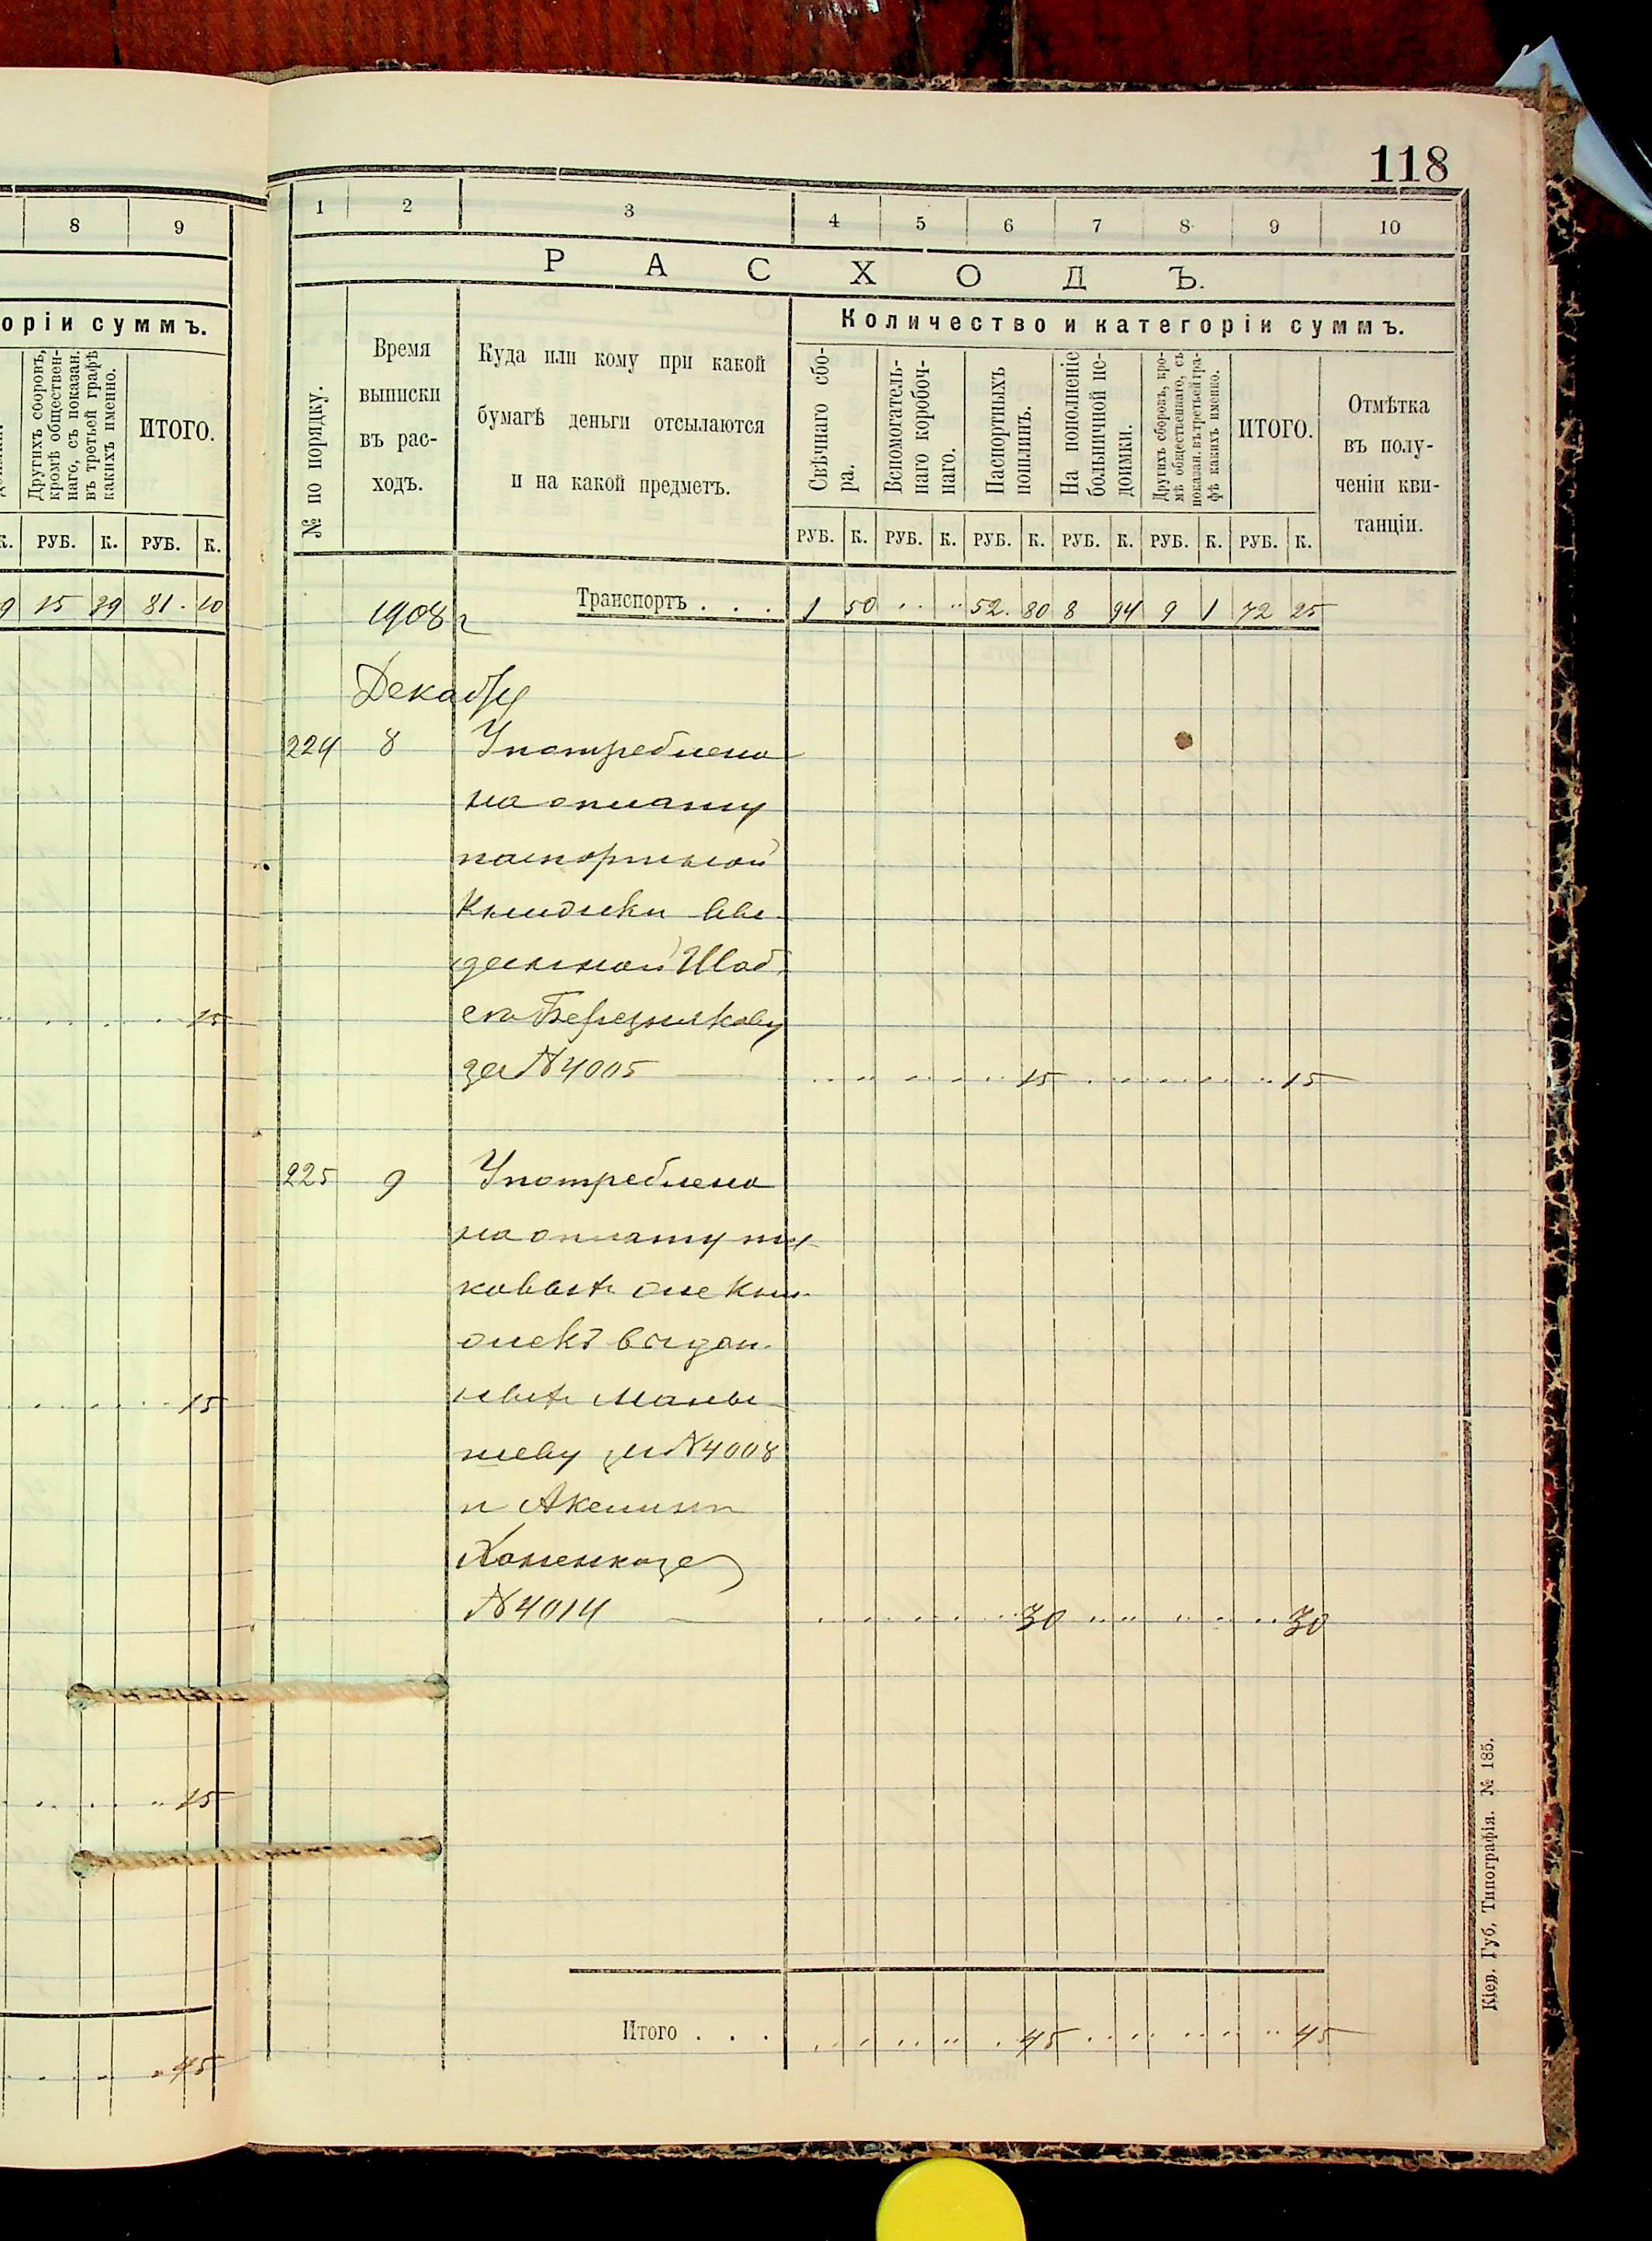 118
8 9
орiи суммъ.
Другихъ сборовъ,
кромѣ обществен-
наго, съ показан.
въ третьей графѣ
какихъ именно.
ИТОГО.
К. РУБ. К. РУБ. К.
9 15 39 81 10
15
15
15
45
1 2 3 4 5 6 7 8 9 10
РАСХОДЪ.
Количество и категорiи суммъ.
№ по порядку.
Время
выписки
въ рас-
ходъ.
Куда или кому при какой
бумагѣ деньги отсылаются
и на какой предметъ.
Свѣчнаго сбо-
ра.
Вспомогатель-
наго коробоч-
наго.
Паспортныхъ
пошлинъ.
На пополненiе
больничной не-
доимки.
Другихъ сборовъ, кро-
мѣ общественнаго, съ
показан. въ третьей гра-
фѣ какихъ именно.
ИТОГО.
Отмѣтка
въ полу-
ченiи кви-
танцiи.
РУБ. К. РУБ. К. РУБ. К. РУБ. К. РУБ. К. РУБ. К.
1908 г Транспортъ . . . 1 50 52. 80 8 94 9 1 72 25
Декабрь
224 8 Употреблено
на оплату
паспортной
Книжки вы-
данной
Березнякову
за № 4005 15 15
225 9 Употреблено
на оплату та-
ковыхъ же Кни-
жекъ выдан-
ныхъ Малы-
шеву за № 4008
и
№ 4014 30 30
Итого . . . 45 45
Кіев. Губ. Типографія. № 185.